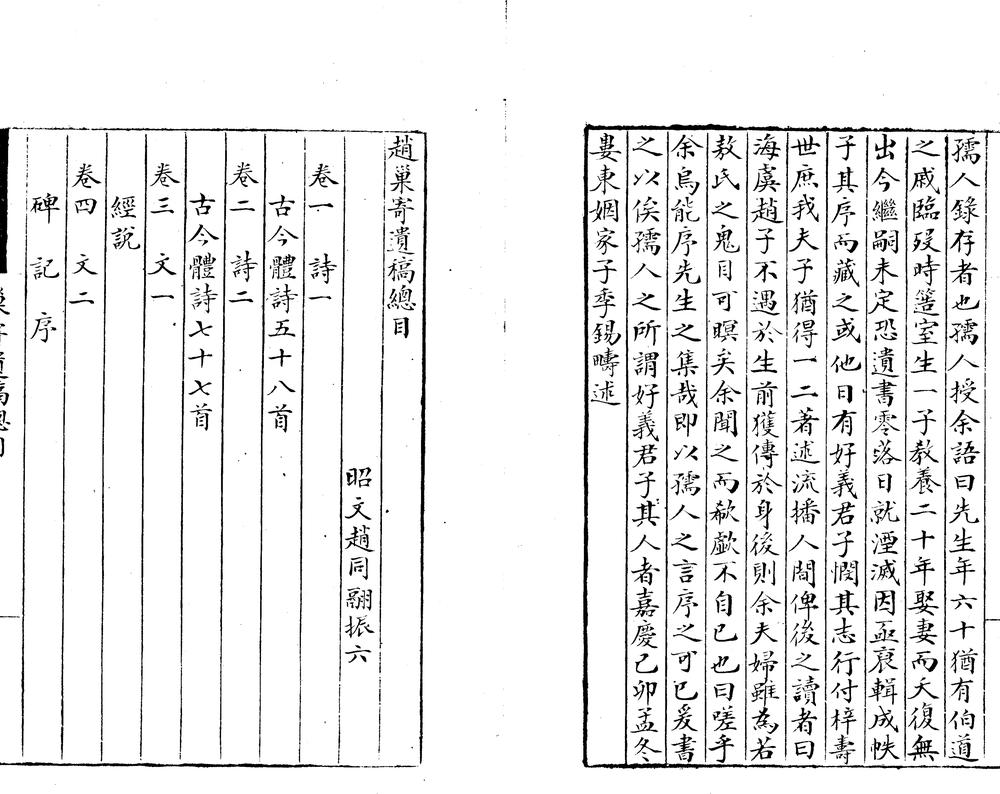 孺人錄存者也孺人授余語曰先生年六十猶有伯道
之戚臨歿時簉室生一子教養二十年娶妻而夭復無
出今繼嗣未定恐遺書零落日就湮滅因亟裒輯成帙
子其序而藏之或他日有好義君子憫其志行付梓壽
世庶我夫子猶得一二著述流播人間俾後之讀者曰
海虞趙子不遇於生前獲傳於身後則余夫婦雖為若
敖氏之鬼目可瞑矣余聞之而欷歔不自已也曰嗟乎
余烏能序先生之集哉即以孺人之言序之可已爰書
之以俟孺人之所謂好義君子其人者嘉慶己卯孟冬
婁東姻家子季錫疇述
趙巢寄遺稿總目
昭文趙同翮振六
卷一 詩一
古今體詩五十八首
卷二 詩二
古今體詩七十七首
卷三 文一
經說
卷四 文二
碑 記 序